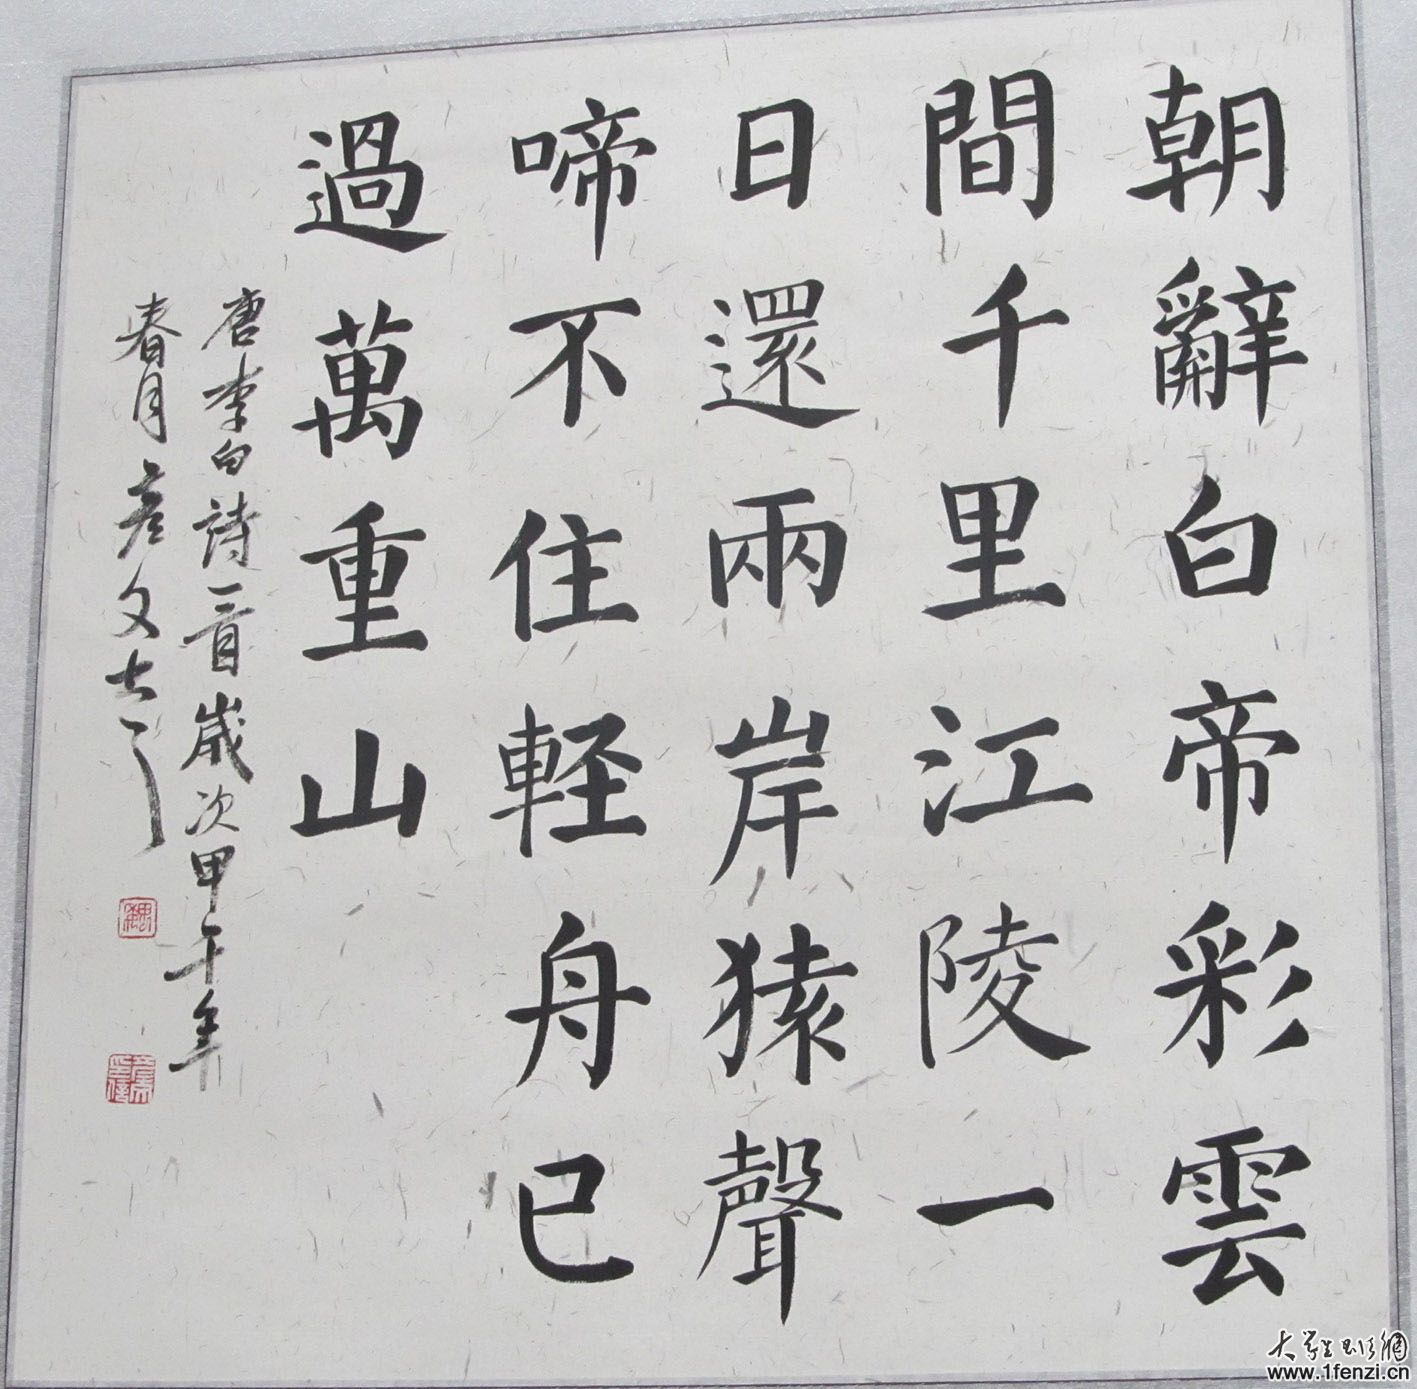 朝辭白帝彩雲
間千里江陵一
日還兩岸猿聲
啼不住輕舟已
過萬重山
唐李白詩一首歲次甲午年
春月彦文书
大学生书法网
www.1fenzi.cn